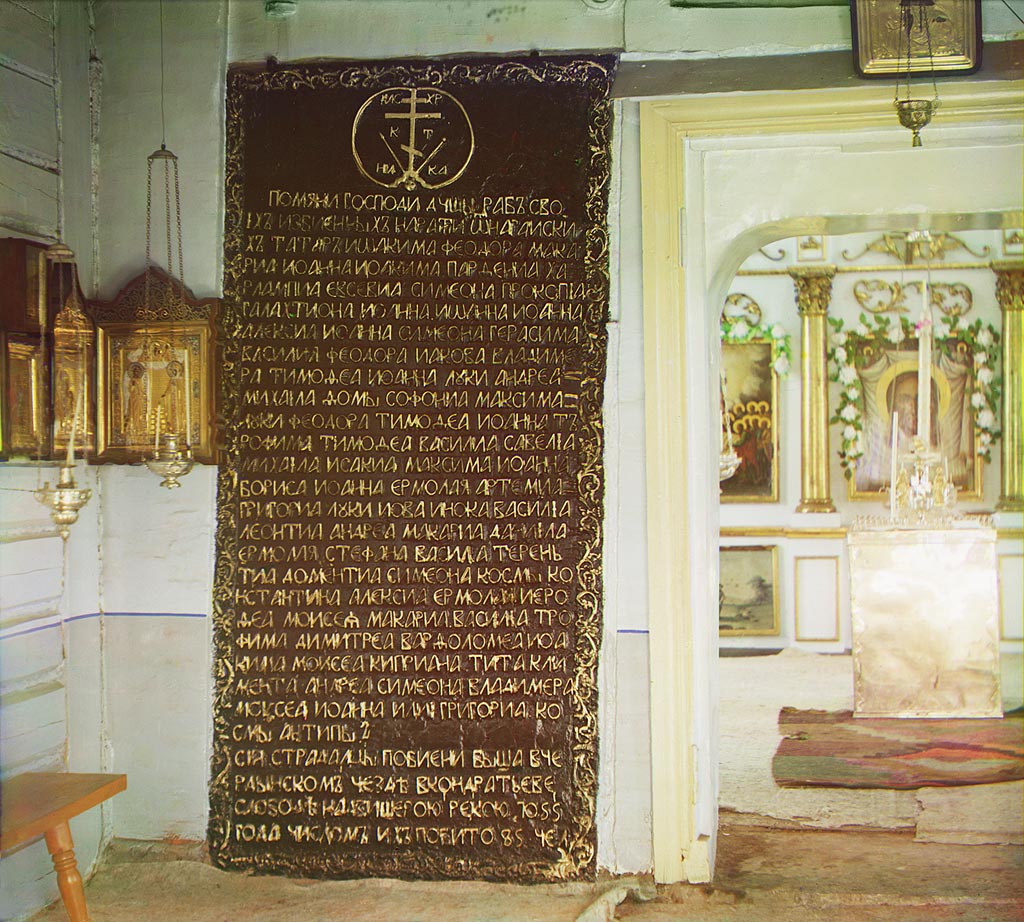 ИІС ХР
К Т
НИ КА
ПОМѦНИ ГОСПОДИ ДУШИ РАБЪ СВО
ИХЪ ИЗБИЕННЫХЪ
ХЪ ТАТАРЪ ИОАКИМА ФЕОДОРА МАКА
РИА ИОАННА ИОАКИМА ПАРѲЕНИА ХА
РЛАМПИА ЕВСЕВИА СИМЕОНА ПРОКОПІА
ГАЛАХТИОНА ИОАННА ИѠАННА ИОАННА
АЛЕКСИА ИОАННА СИМЕОНА ГЕРАСИМА
ВАСИЛИА ФЕОДОРА ИАКОВА ВЛАДИМЕ
РА ТИМОѲЕА ИОАННА ЛУКИ АНДРЕА
МИХАИЛА ДОМЫ СОФОНИА МАКСИМА
ЛУКИ ФЕОДОРА ТИМОѲЕА ИОАННА ТЪ
РОФИМА ТИМОѲЕА ВАСИЛИА САВЕЛІА
МИХАИЛА ИСАКИА МАКСИМА ИОАННА
БОРИСА ИОАННА ЕРМОЛАЯ АРТЕМИА
ГРИГОРИА ЛУКИ ИОВА ВАСИЛІА
ЛЕОНТИА АНДРЕА МАКАРИА ДАНИИЛА
ЕРМОЛИЯ СТЕФАНА ВАСИЛІА ТЕРЕНЬ
ТИА ДОМЕНТИА СИМЕОНА КОСМЫ КО
НСТАНТИНА АЛЕКСИА ЕРМОЛАИ ИЕРО
ѲЕА МОИСЕѦ МАКАРИА ВАСИЛІА ТРО
ФИМА ДИМИТРЕА ВАРѲОЛОМЕА ИОА
КИМА МОИСЕА КИПРИАНА ТИТА КЛИ
МЕНТА АНДРЕА СИМЕОНА ВЛАДИМЕРА
МОИСЕА ИОАННА ИЛИИ ГРИГОРИА КО
СМЫ АНТИПЫ
СІИ СТРАДАЛЦЫ ПОБИЕНИ БЫША ВЧЕ
РДЫНСКОМЪ УЕЗДѢ ВКОНДРАТЬЕВЕ
СЛОБОДѢ НАДВИШЕРОЮ РЕКОЮ 7055
ГОДА ЧИСЛОМЪ ИХЪ ПОБИТО 85 ЧЕ